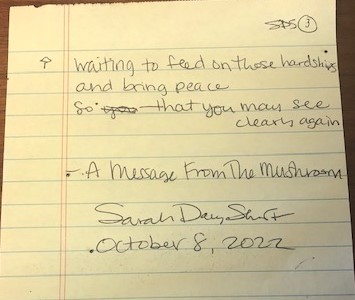 3
waiting to feed on those hardships
and bring peace
so that you may see
clearly again
- A Message From The Mushrooms
Sarah
October 8, 2022